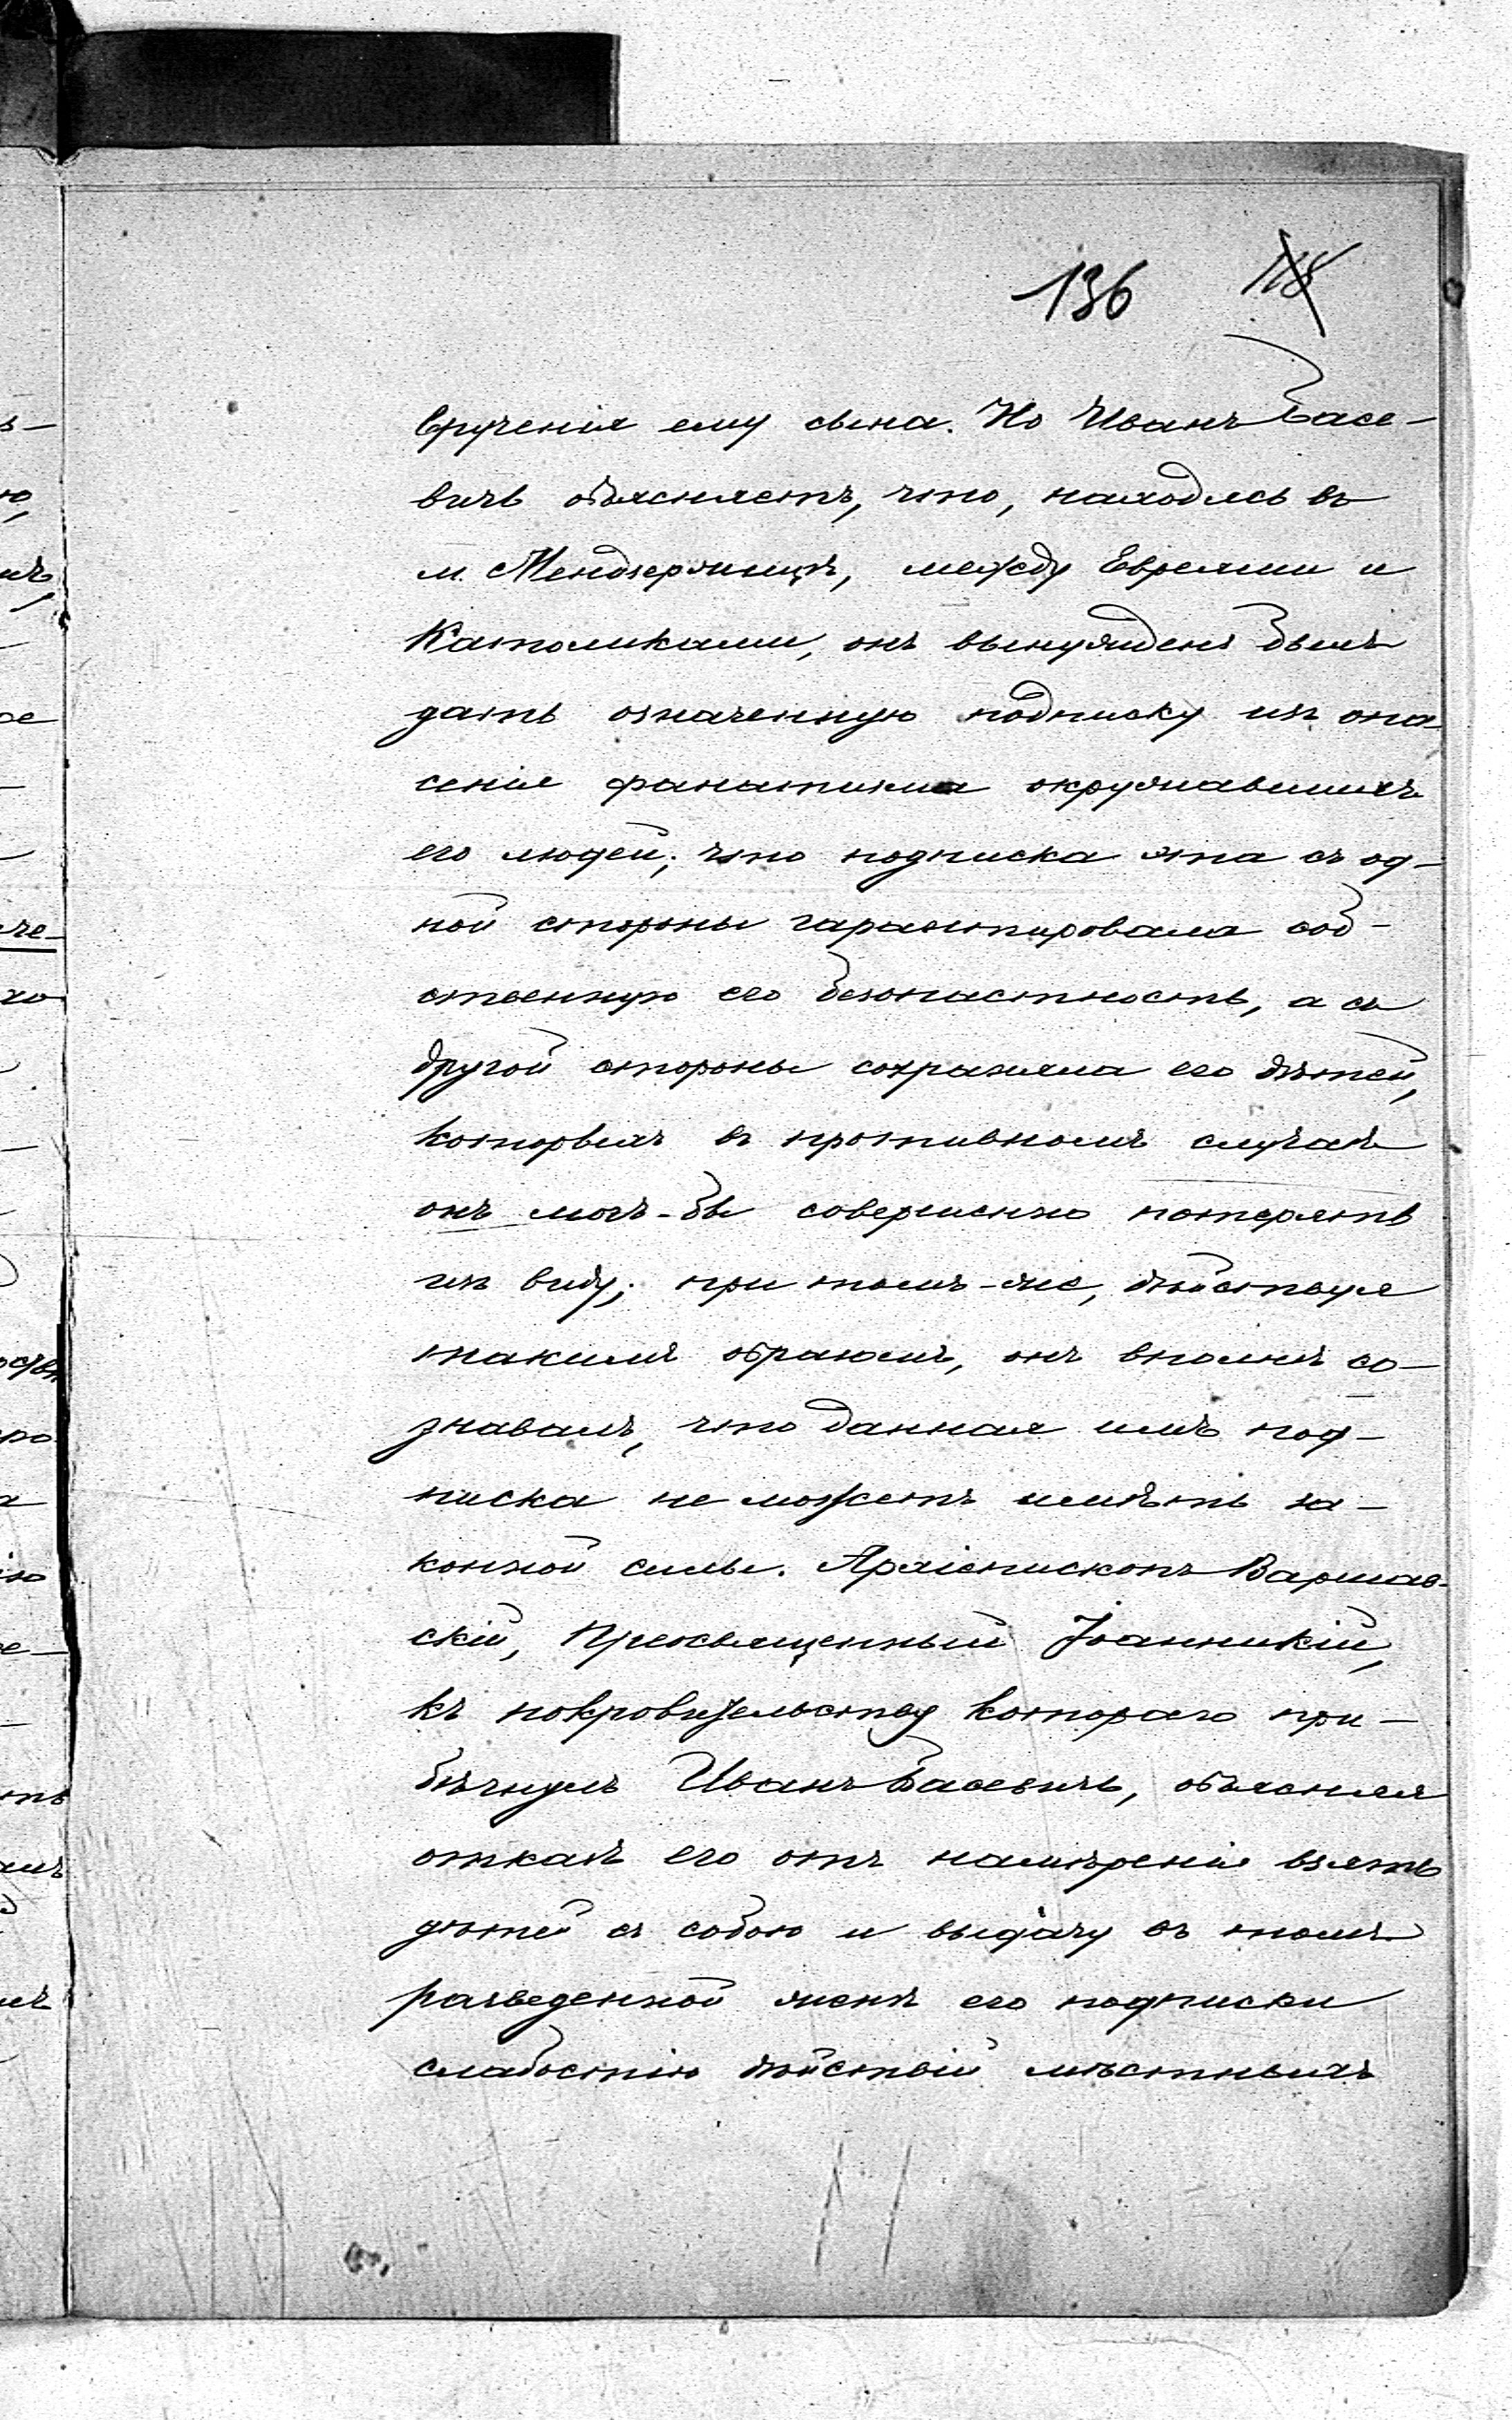 136 118
врученія ему сына. Но Иванъ Басе-
вичъ объясняетъ, что, находясь въ
м. Мендзержицѣ, между Евреями и
Католиками, онъ вынужденъ былъ
дать означенную подписку изъ опа-
сенія фанатизма окружавшихъ
его людей; что подписка эта съ од-
ной стороны гарантировала соб-
ственную его безопастность, а съ
другой стороны сохраняла его дѣтей,
которыхъ въ противномъ случаѣ
онъ могъ-бы совершенно потерять
изъ виду; при томъ-же, дѣйствуя
такимъ образомъ, онъ вполнѣ со-
знавалъ, что данная имъ под-
писка не можетъ имѣть за-
конной силы. Архіепископъ Варшав-
скій, Преосвященный Іоанникій,
къ покровительству котораго при-
бѣгнулъ Иванъ Басевичъ, объясняя
отказъ его отъ намѣренія взять
дѣтей съ собою и выдачу въ томъ
разведенной женѣ его подписки
слабостію дѣйствій мѣстныхъ